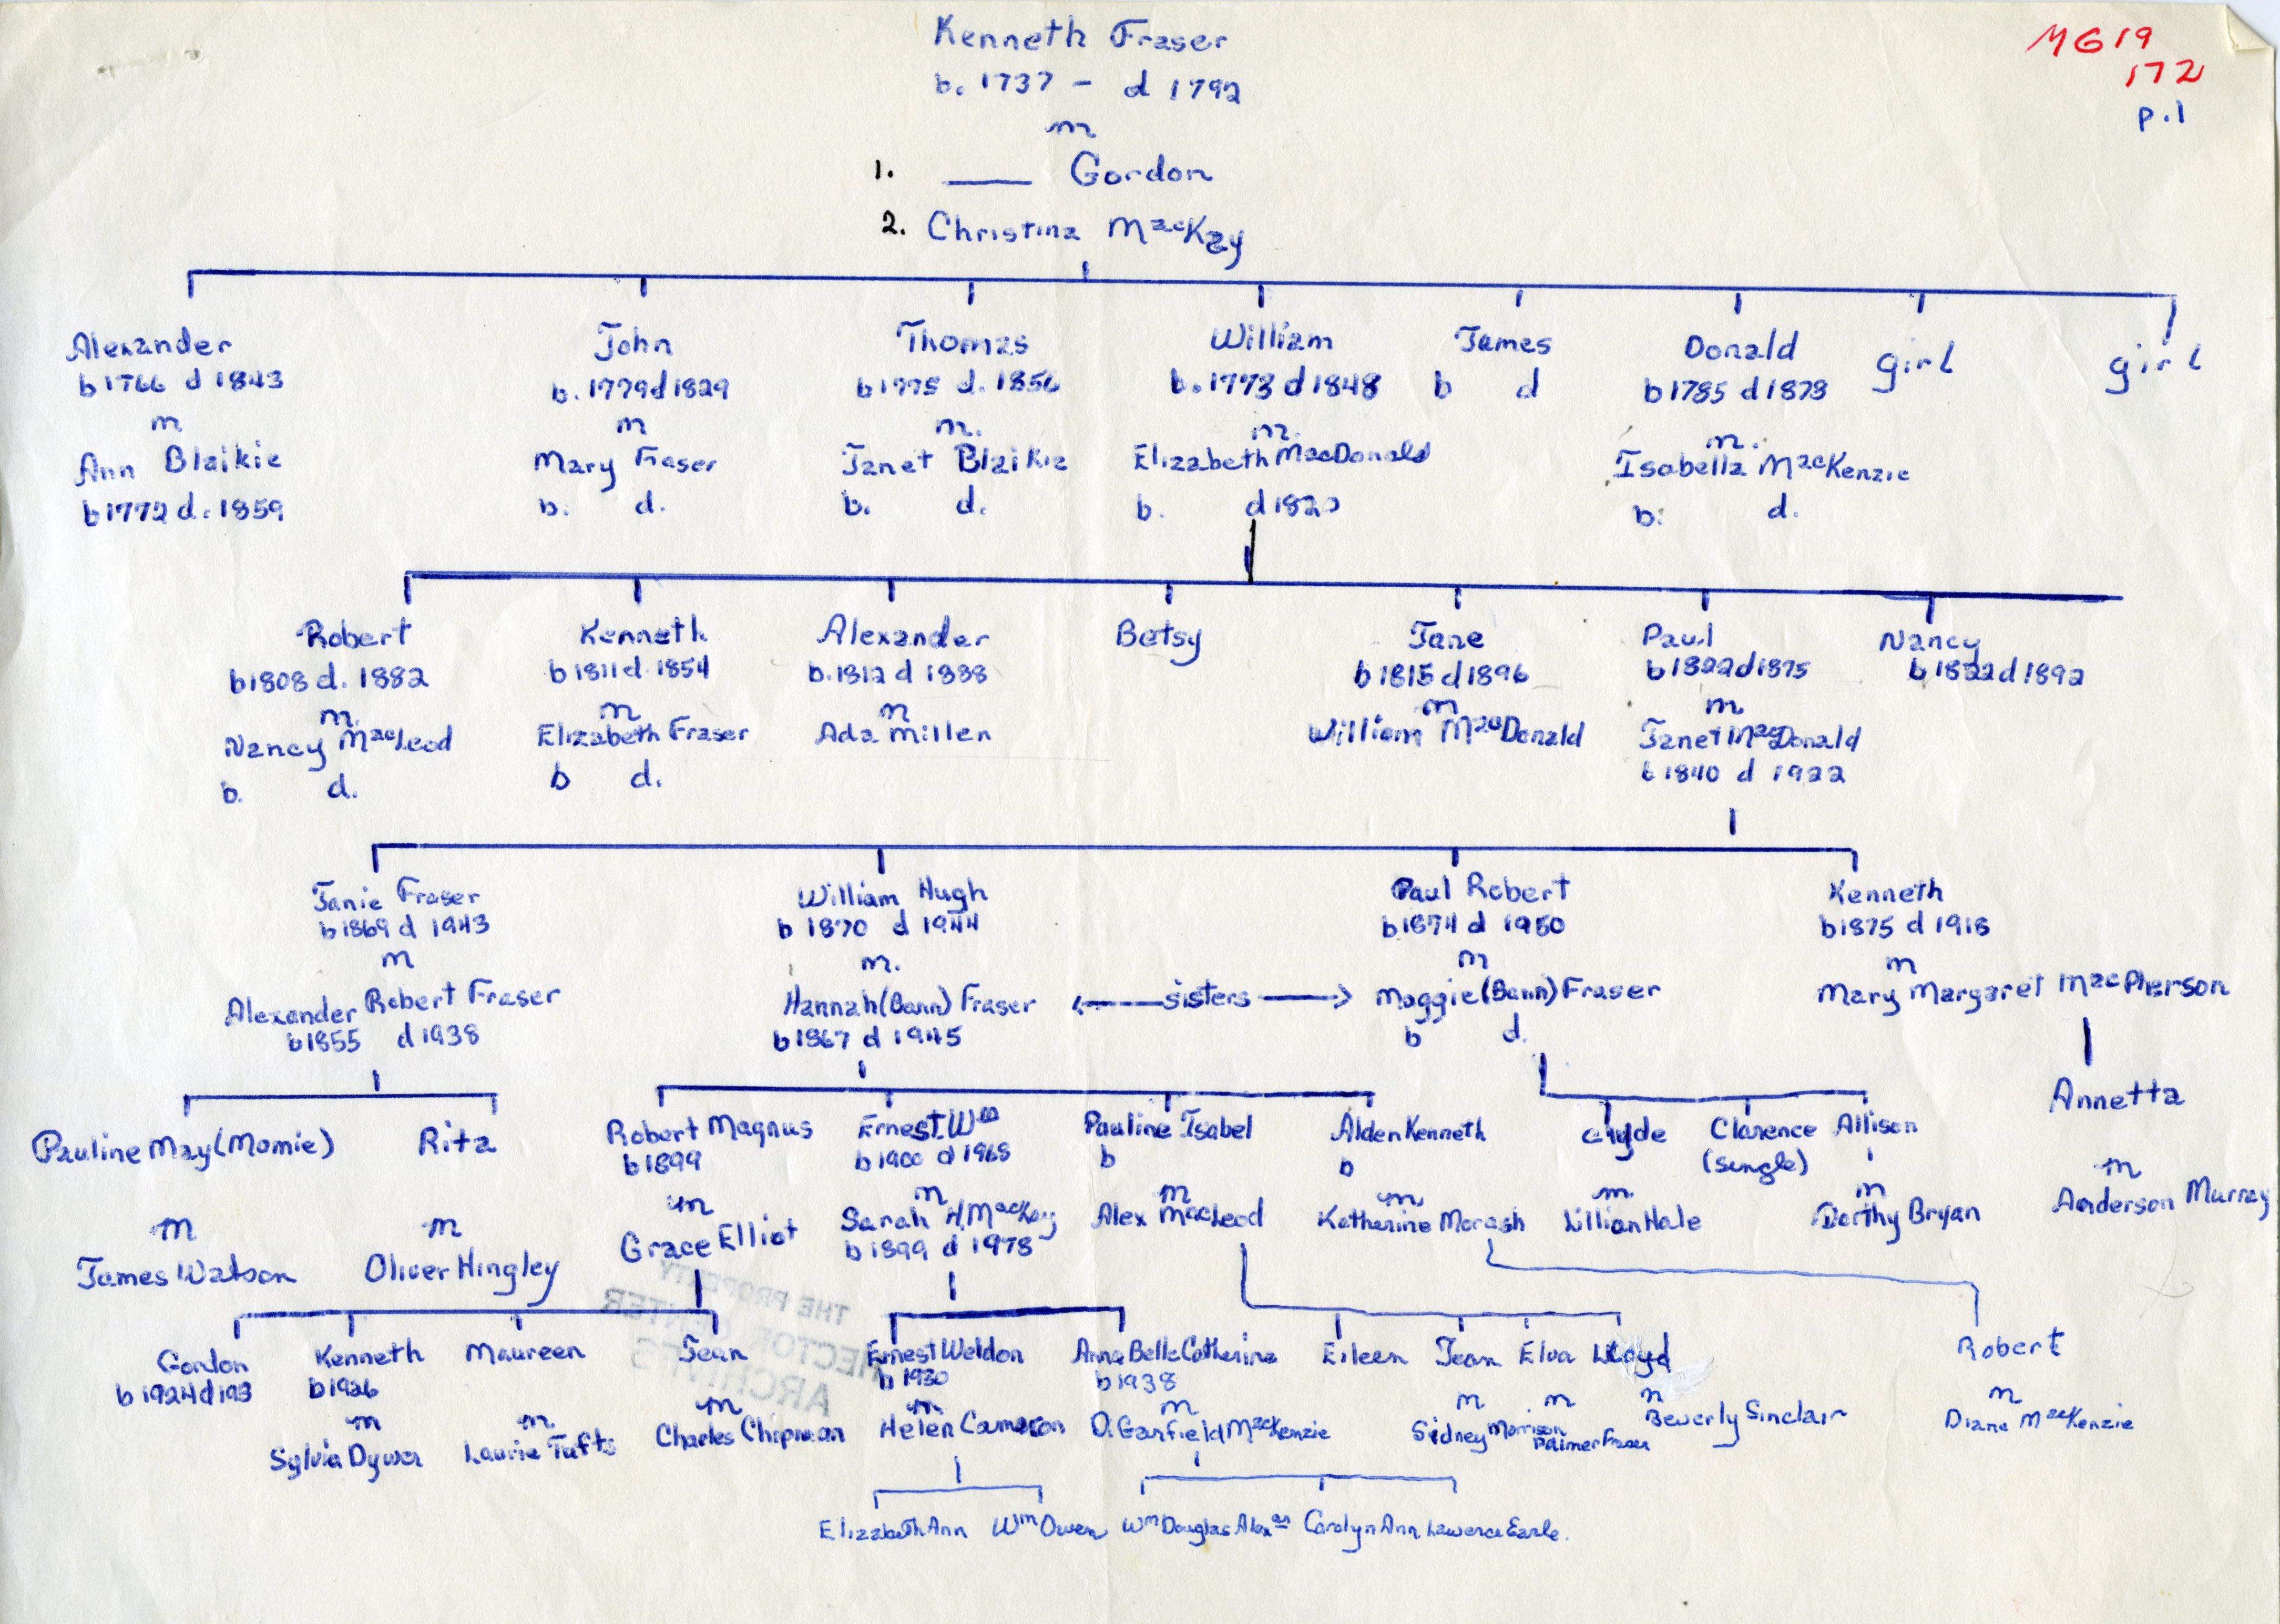 Kenneth Fraser
MG19
172
b. 1737 - d 1792
p.1
m
1. ____ Gordon
2. Christina MacKay
Alexander John Thomas William James Donald girl girl
b 1766 d 1843 b. 1779 d 1829 b 1775 d. 1856 b. 1773 d 1848 b d b 1785 d 1873
m m m. m. m.
Ann Blaikie Mary Fraser Janet Blaikie Elizabeth MacDonald Isabella MacKenzie
b 1772 d. 1859 b. d. b. d. b. d 1820 b. d.
Robert Kenneth Alexander Betsy Jane Paul Nancy
b 1808 d. 1882 b 1811 d. 1854 b. 1812 d 1888 b 1815 d 1896 b 1822 d 1875 b 1822 d 1892
m m m m m
Nancy MacLeod Elizabeth Fraser Ada Millen William MacDonald Janet MacDonald
b. d. b d. b 1840 d 1922
Janie Fraser William Hugh Paul Robert Kenneth
b 1869 d 1943 b 1870 d 1944 b 1874 d 1950 b 1875 d 1918
m m. m m
Alexander Robert Fraser Hannah (Bann) Fraser ←sisters→ Maggie (Bann) Fraser Mary Margaret MacPherson
b 1855 d 1938 b 1867 d 1945 b d.
Pauline May (Momie) Rita Robert Magnus Ernest Wm Pauline Isabel Alden Kenneth Clyde Clarence Allison Annetta
b 1899 b 1900 d 1968 b b (single)
m m m m m m m m m
James Watson Oliver Hingley Grace Elliot Sarah H. MacKay Alex MacLeod Katherine Morash Lillian Hale Dorthy Bryan Anderson Murray
b 1899 d 1978
THE PROPERTY
HECTOR CENTER
ARCHIVES
Gordon Kenneth Maureen Jean Ernest Weldon Anna Belle Catherine Eileen Jean Elva Lloyd Robert
b 1924 d 193 b 1926 b 1930 b 1938
m m m m m m m m m
Sylvia Dywer Laurie Tufts Charles Chapman Helen Cameron D. Garfield MacKenzie Sidney Morrison Palmer Fraser Beverly Sinclair Diane MacKenzie
Elizabeth Ann Wm Owen Wm Douglas Alexan Carolyn Ann Lawerce Earle.